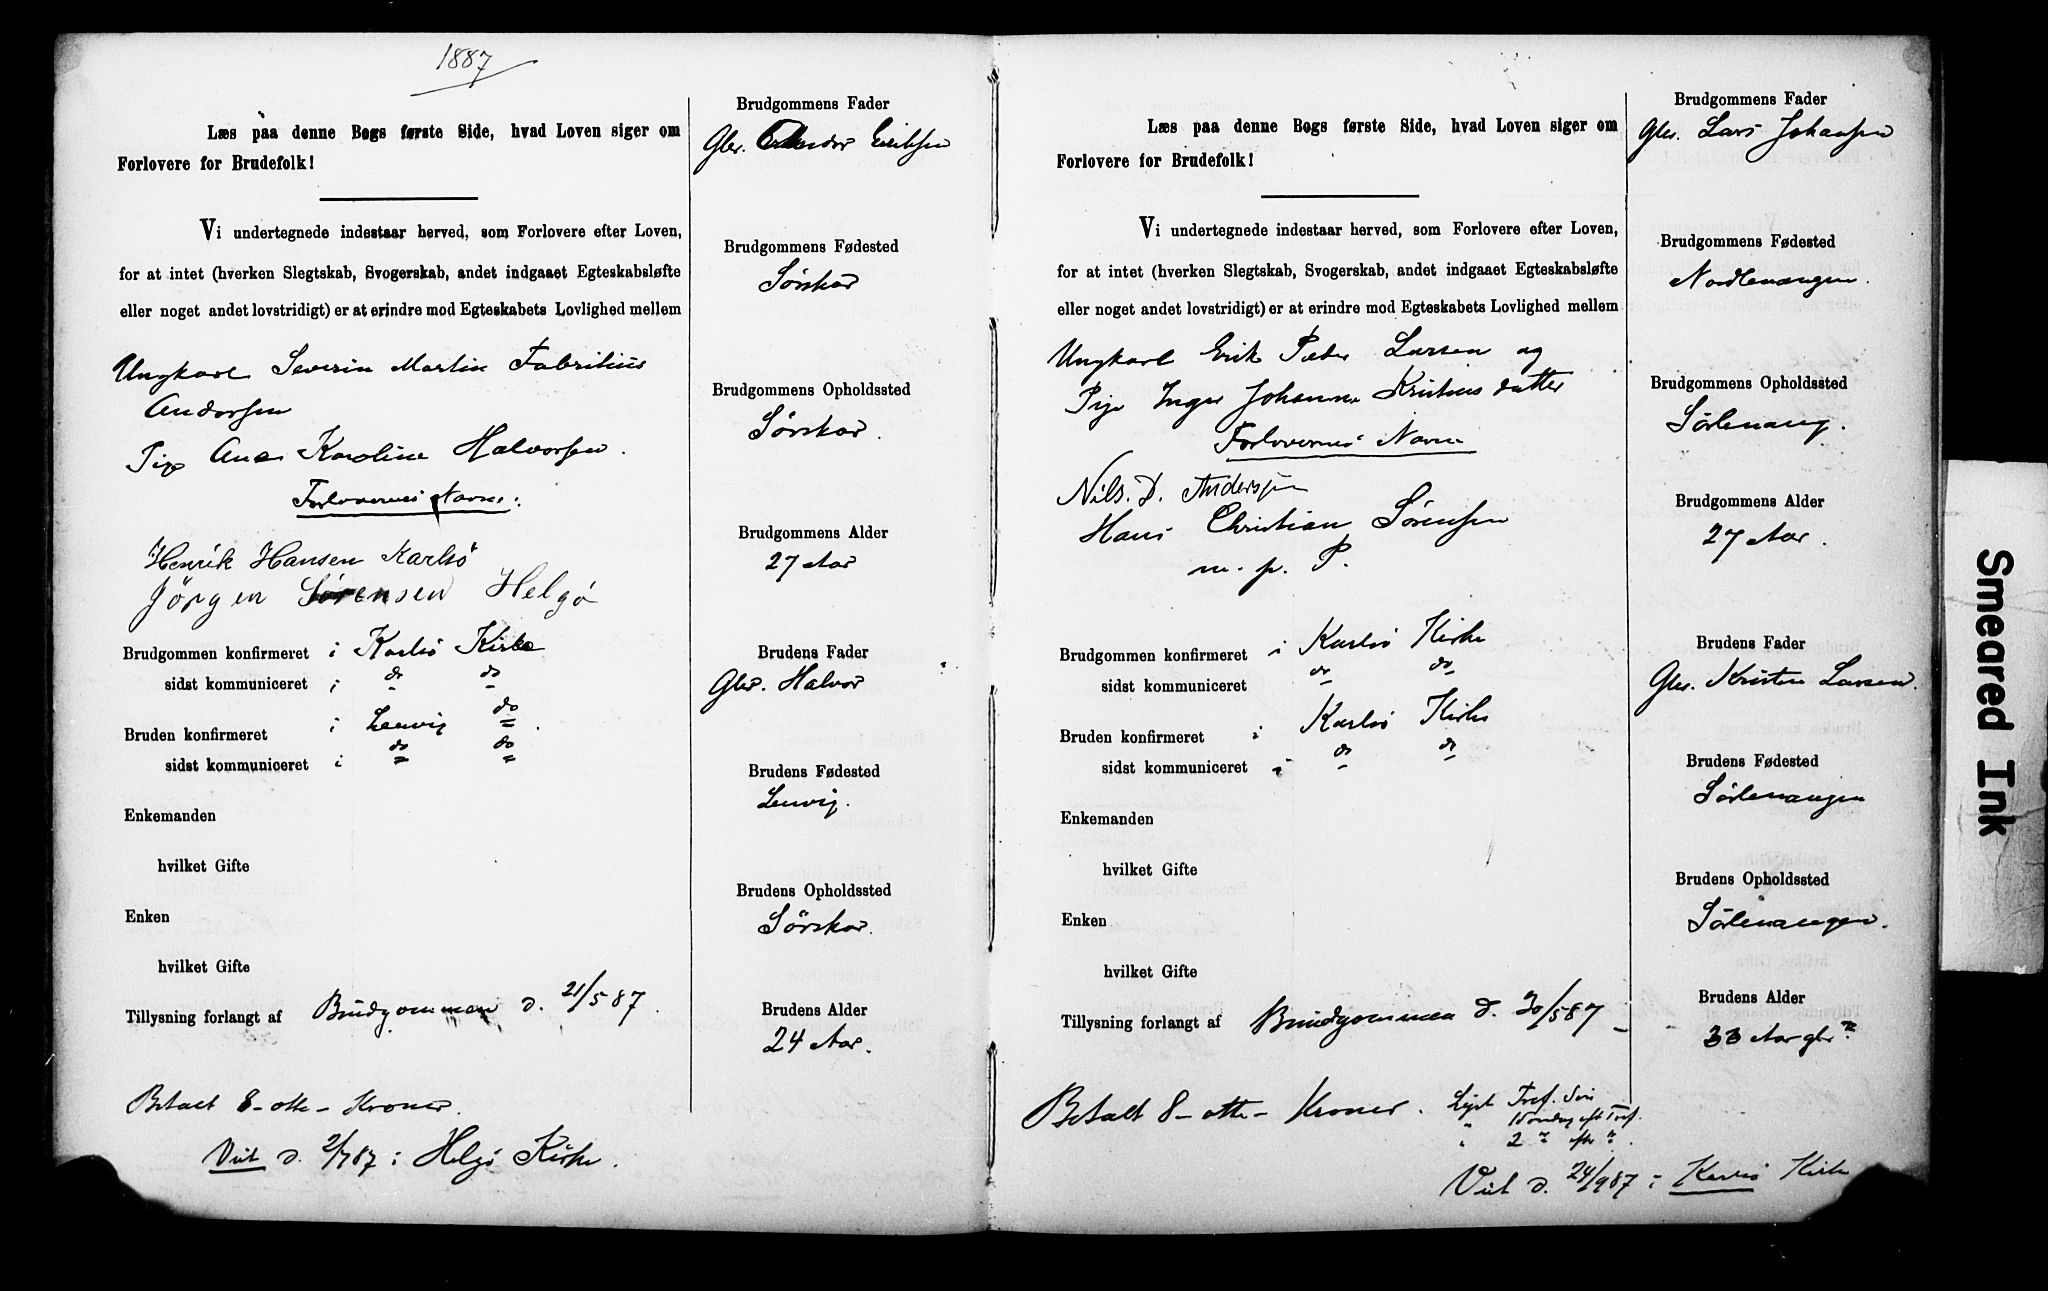 1887
Læs paa denne Bogs første Side, hvad Loven siger om
Forlovere for Brudefolk!
Vi undertegnede indestaar herved, som Forlovere efter Loven,
for at intet (hverken Slegtskab, Svogerskab, andet indgaaet Egteskabsløfte
eller noget andet lovstridigt) er at erindre mod Egteskabets Lovlighed mellem
Ungkarl Severin Martin Fabritius
Andersen
Pige Ane Karoline Halvorsen.
Forlovernes Navne:
Henrik Hansen Karlsö
Jörgen Sørensen Helgö
Brudgommen konfirmeret i Karlsö Kirke
sidst kommuniceret i do do
Bruden konfirmeret i Lenvig do.
sidst kommuniceret i do do
Enkemanden
hvilket Gifte
Enken
hvilket Gifte
Tillysning forlangt af Brudgommen d. 21/5 87.
Betalt 8 - otte - Kroner.
Viet d. 2/7 87 i Helgö Kirke.
Brudgommens Fader
Gbr. Eriksen
Brudgommens Fødested
Sörskar
Brudgommens Opholdssted
Sörskar.
Brudgommens Alder
27 Aar
Brudens Fader
Gbr. Halvor
Brudens Fødested
Lenvig.
Brudens Opholdssted
Sörskar.
Brudens Alder
24 Aar.
Læs paa denne Bogs første Side, hvad Loven siger om
Forlovere for Brudefolk!
Vi undertegnede indestaar herved, som Forlovere efter Loven,
for at intet (hverken Slegtskab, Svogerskab, andet indgaaet Egteskabsløfte
eller noget andet lovstridigt) er at erindre mod Egteskabets Lovlighed mellem
Ungkarl Erik Peder Larsen og
Pige Inger Johanne Kristensdatter
Forlovernes Navne
Nils. D. Andersen
Hans Christian Sörensen
m. p. P.
Brudgommen konfirmeret i Karlsö Kirke
sidst kommuniceret do do
Bruden konfirmeret i Karlsö Kirke
sidst kommuniceret i do do
Enkemanden
hvilket Gifte
Enken
hvilket Gifte
Tillysning forlangt af Brudgommen d. 30/5 87
Betalt 8 - otte - Kroner. Lyst Tref. Sön
" 1 Söndag eft Tref.
" 2 " efter ".
Viet d. 24/9 87 i Karlsö Kirke
Brudgommens Fader
Gbr. Lars Johansen
Brudgommens Fødested
Nordlenangen.
Brudgommens Opholdssted
Sörlenang.
Brudgommens Alder
27 Aar.
Brudens Fader
Gbr. Kristen Larsen.
Brudens Fødested
Sörlenangen
Brudens Opholdssted
Sörlenangen.
Brudens Alder
33 Aar
Smeared Ink